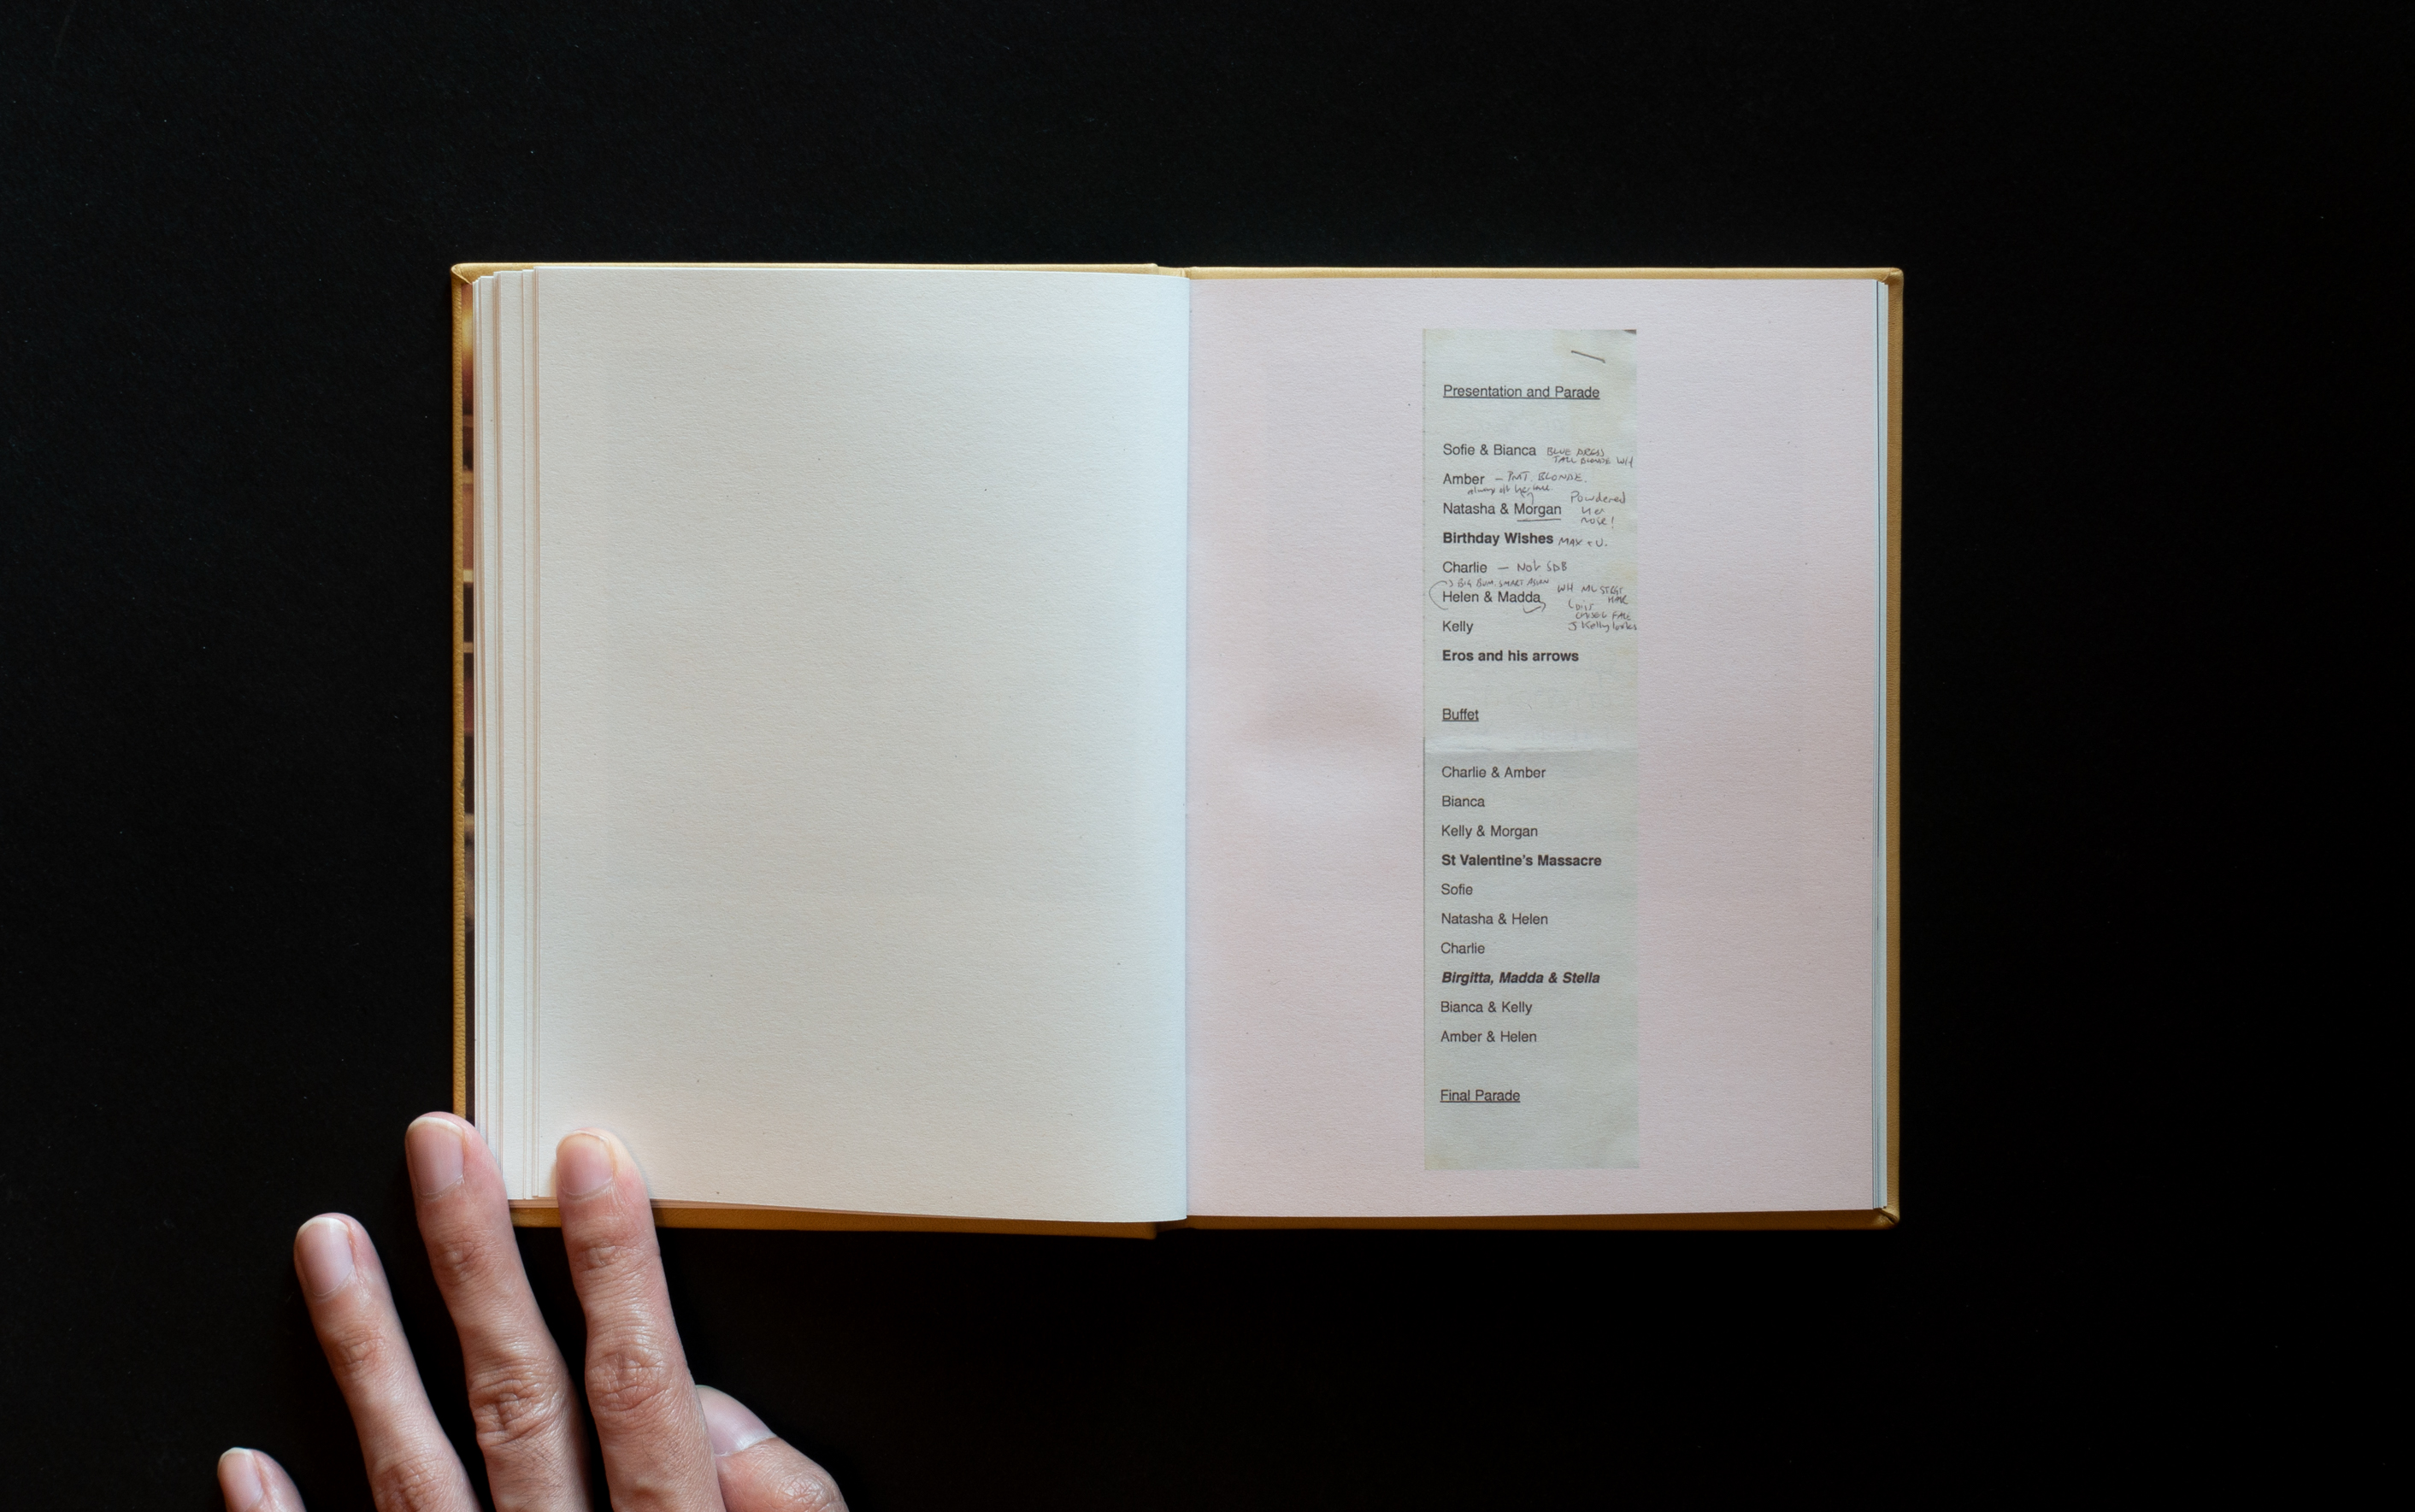 Presentation and Parade
Sofie & Bianca BLUE
TALL BLONDE WH
Amber – PMT. BLONDE.
always off her
Powdered
Natasha & Morgan her
nose!
Birthday Wishes MAX + U.
Charlie – Not SDB
BIG BUM. SMART ASIAN
Helen & Madda WH
HAIR
FACE
Kelly J Kelly looks
Eros and his arrows
Buffet
Charlie & Amber
Bianca
Kelly & Morgan
St Valentine's Massacre
Sofie
Natasha & Helen
Charlie
Birgitta, Madda & Stella
Bianca & Kelly
Amber & Helen
Final Parade